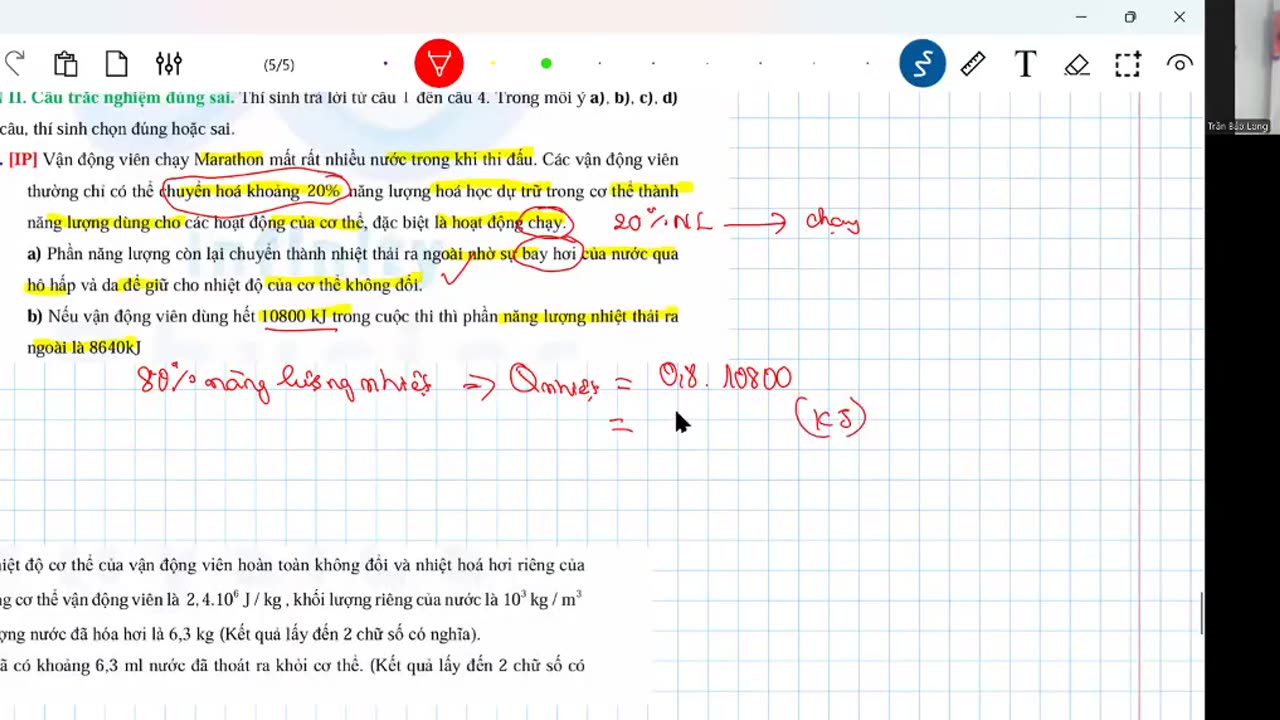 (5/5)
T
II. Câu trắc nghiệm đúng sai. Thí sinh trả lời từ câu 1 đến câu 4. Trong mỗi ý a), b), c), d)
câu, thí sinh chọn đúng hoặc sai.
[IP] Vận động viên chạy Marathon mất rất nhiều nước trong khi thi đấu. Các vận động viên
thường chỉ có thể chuyển hoá khoảng 20% năng lượng hoá học dự trữ trong cơ thể thành
năng lượng dùng cho các hoạt động của cơ thể, đặc biệt là hoạt động chạy.
20% NL → chạy
a) Phần năng lượng còn lại chuyển thành nhiệt thải ra ngoài nhờ sự bay hơi của nước qua
hô hấp và da để giữ cho nhiệt độ của cơ thể không đổi.
b) Nếu vận động viên dùng hết 10800 kJ trong cuộc thi thì phần năng lượng nhiệt thải ra
ngoài là 8640kJ
80% năng lượng nhiệt => Qnhiệt = 0,8. 10800
= (KJ)
iệt độ cơ thể của vận động viên hoàn toàn không đổi và nhiệt hoá hơi riêng của
g cơ thể vận động viên là 2,4.10⁶ J / kg , khối lượng riêng của nước là 10³ kg / m³
ợng nước đã hóa hơi là 6,3 kg (Kết quả lấy đến 2 chữ số có nghĩa).
ã có khoảng 6,3 ml nước đã thoát ra khỏi cơ thể. (Kết quả lấy đến 2 chữ số có
Trần Bảo Long